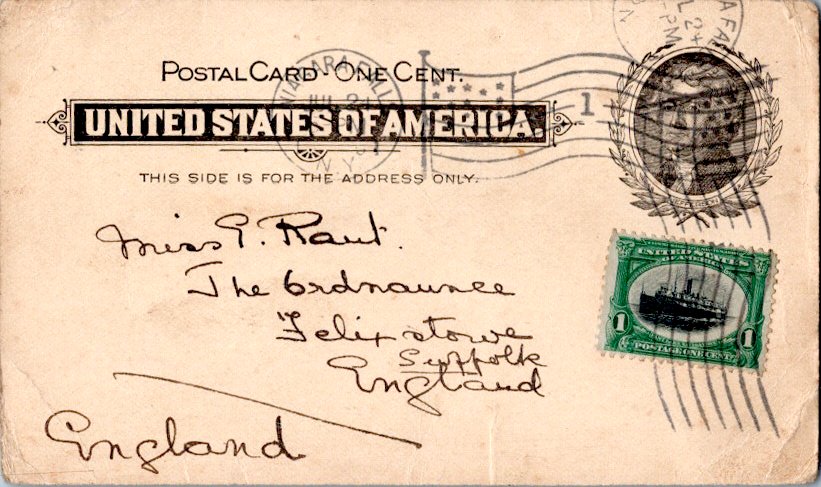 POSTAL CARD - ONE CENT.
UNITED STATES OF AMERICA.
THIS SIDE IS FOR THE ADDRESS ONLY.
NIAGARA FALLS
JUL 24
N.Y.
1
2 4
PM
Miss E. Raut.
The Ordnaunce
Felixstowe
Suffolk
England
England
UNITED STATES
OF AMERICA
1 1
POSTAGE ONE CENT